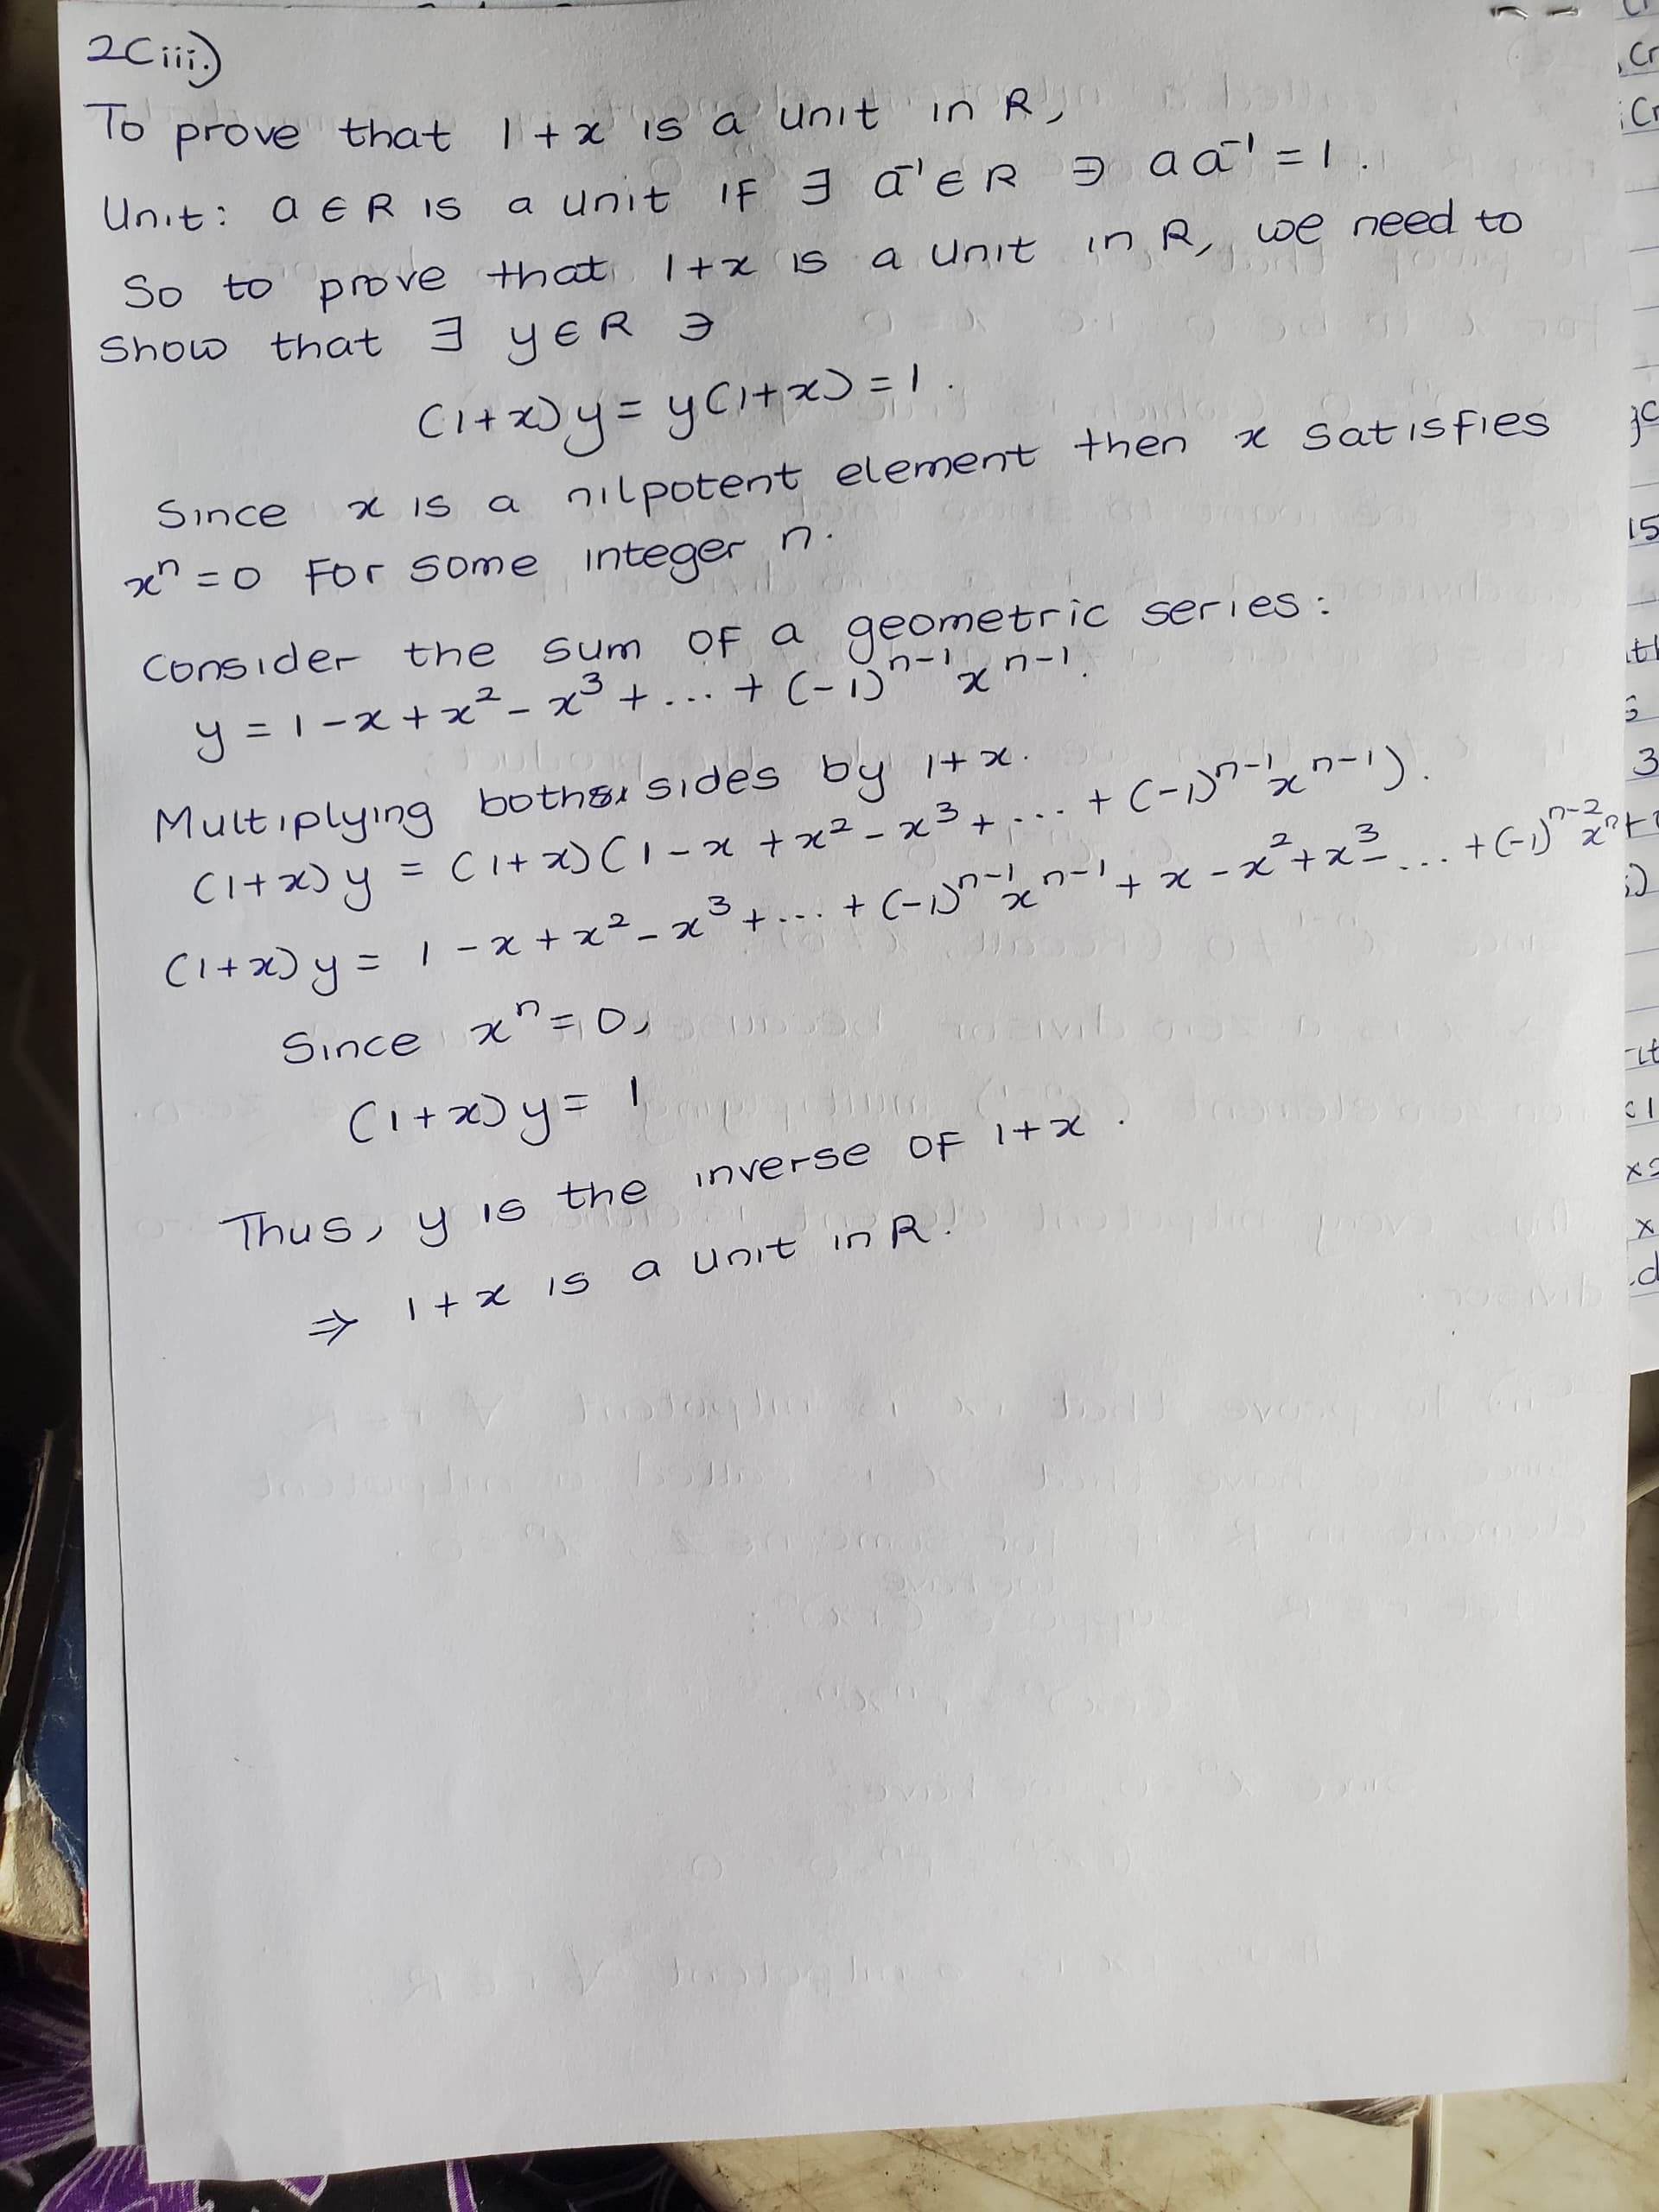 2Ciii.)
To prove that 1+x is a unit in R,
Unit: a ∈ R is a unit if ∃ a⁻¹ ∈ R ∋ a a⁻¹ = 1.
So to prove that 1+x is a unit in R, we need to
Show that ∃ y ∈ R ∋
(1+x)y = y(1+x) = 1.
Since x is a nilpotent element then x satisfies
xⁿ = 0 for some integer n.
Consider the sum of a geometric series:
y = 1 - x + x² - x³ + ... + (-1)ⁿ⁻¹ xⁿ⁻¹.
Multiplying both sides by 1+x.
(1+x)y = (1+x)(1 - x + x² - x³ + ... + (-1)ⁿ⁻¹ xⁿ⁻¹).
(1+x)y = 1 - x + x² - x³ + ... + (-1)ⁿ⁻¹ xⁿ⁻¹ + x - x² + x³ - ... + (-1)ⁿ⁻²
Since xⁿ = 0,
(1+x)y = 1
Thus, y is the inverse of 1+x.
⇒ 1+x is a unit in R.